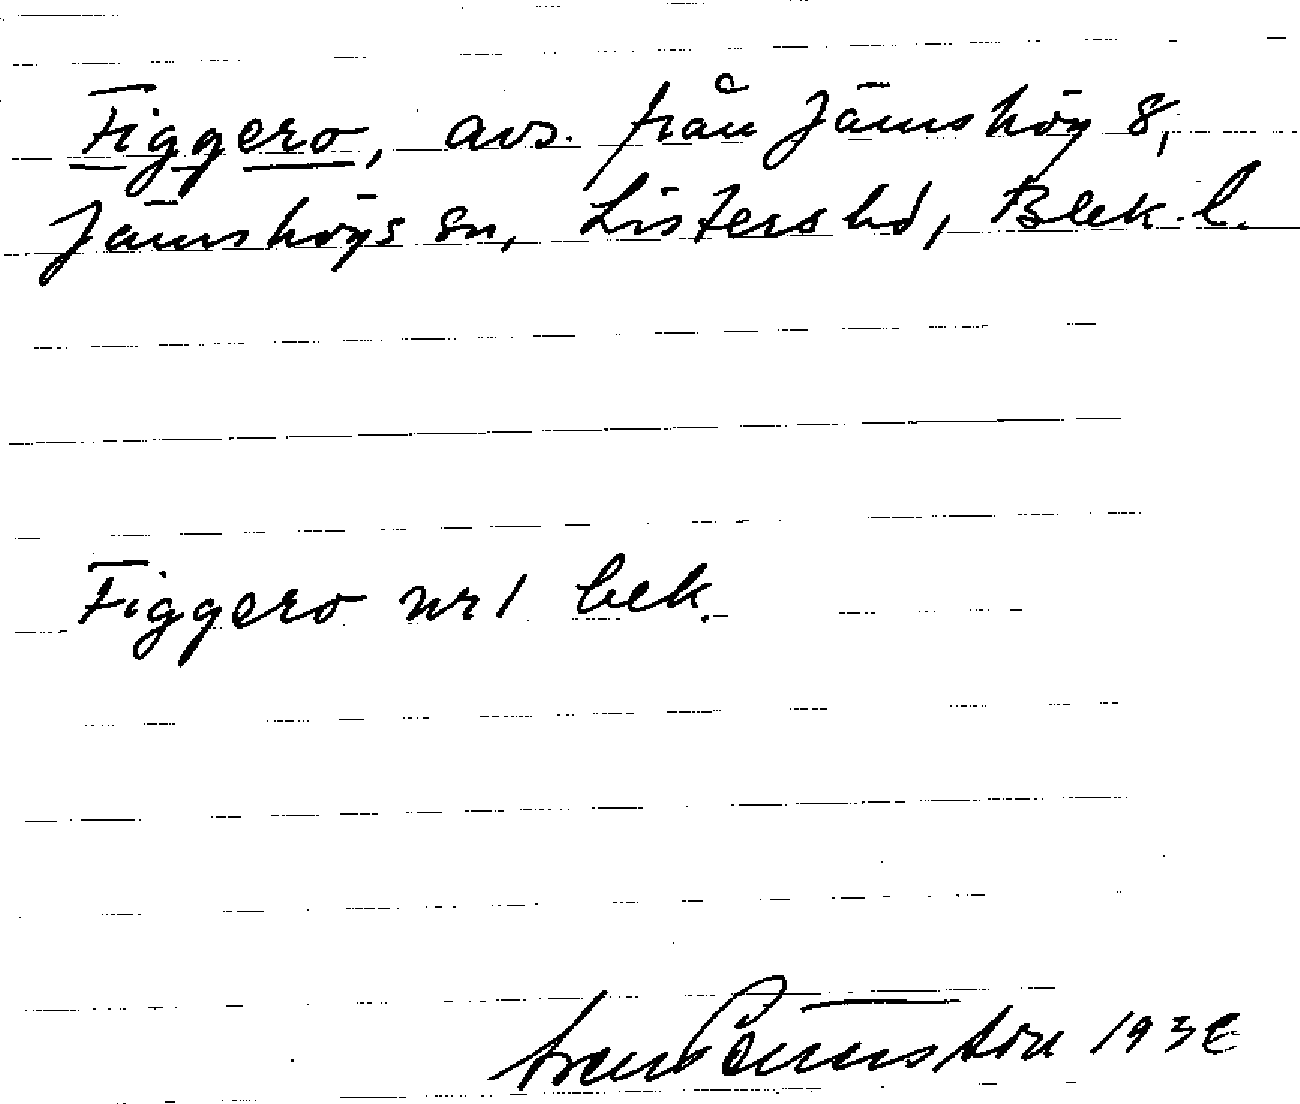 Figgero, avs. från Jämshög 8,
Jämshögs sn, Listers hd, Blek. l.
Figgero nr 1 bek.
1938